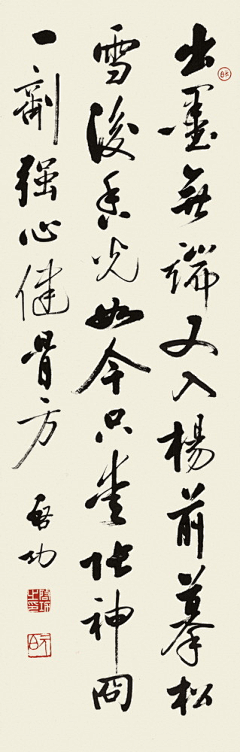 出墨無端又入楊前摹松
雪後香光如今只愛張神冏
一劑强心健骨方
啓功